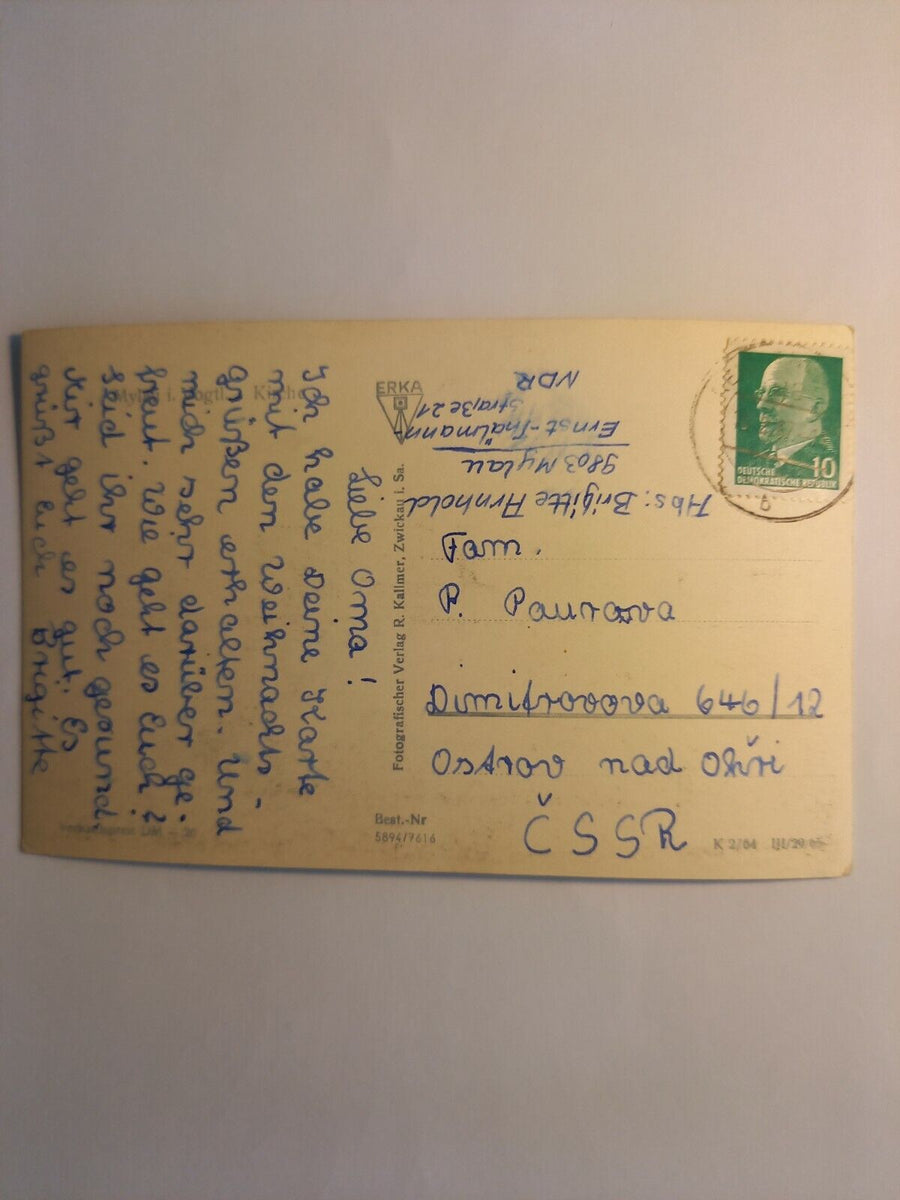 Mylau i. Vogtl. Kirche
Liebe Oma!
Ich habe Deine Karte
mit den Weihnachts-
Grüßen erhalten. Und
mich sehr darüber ge-
freut. Wie geht es Euch?
Seid ihr noch gesund
Mir geht es gut. Es
grüßt Euch Brigitte
Verkaufspreis DM —.20
ERKA
Fotografischer Verlag R. Kallmer, Zwickau i. Sa.
Best.-Nr
5894/7616
Abs: Brigitte Arnhold
9803 Mylau
Ernst-Thälmann-
Straße 21
DDR
DEUTSCHE
DEMOKRATISCHE REPUBLIK
10
Fam.
P. Paurova
Dimitrovova 646/12
Ostrov nad Ohři
ČSSR
K 2/64 III/29/65